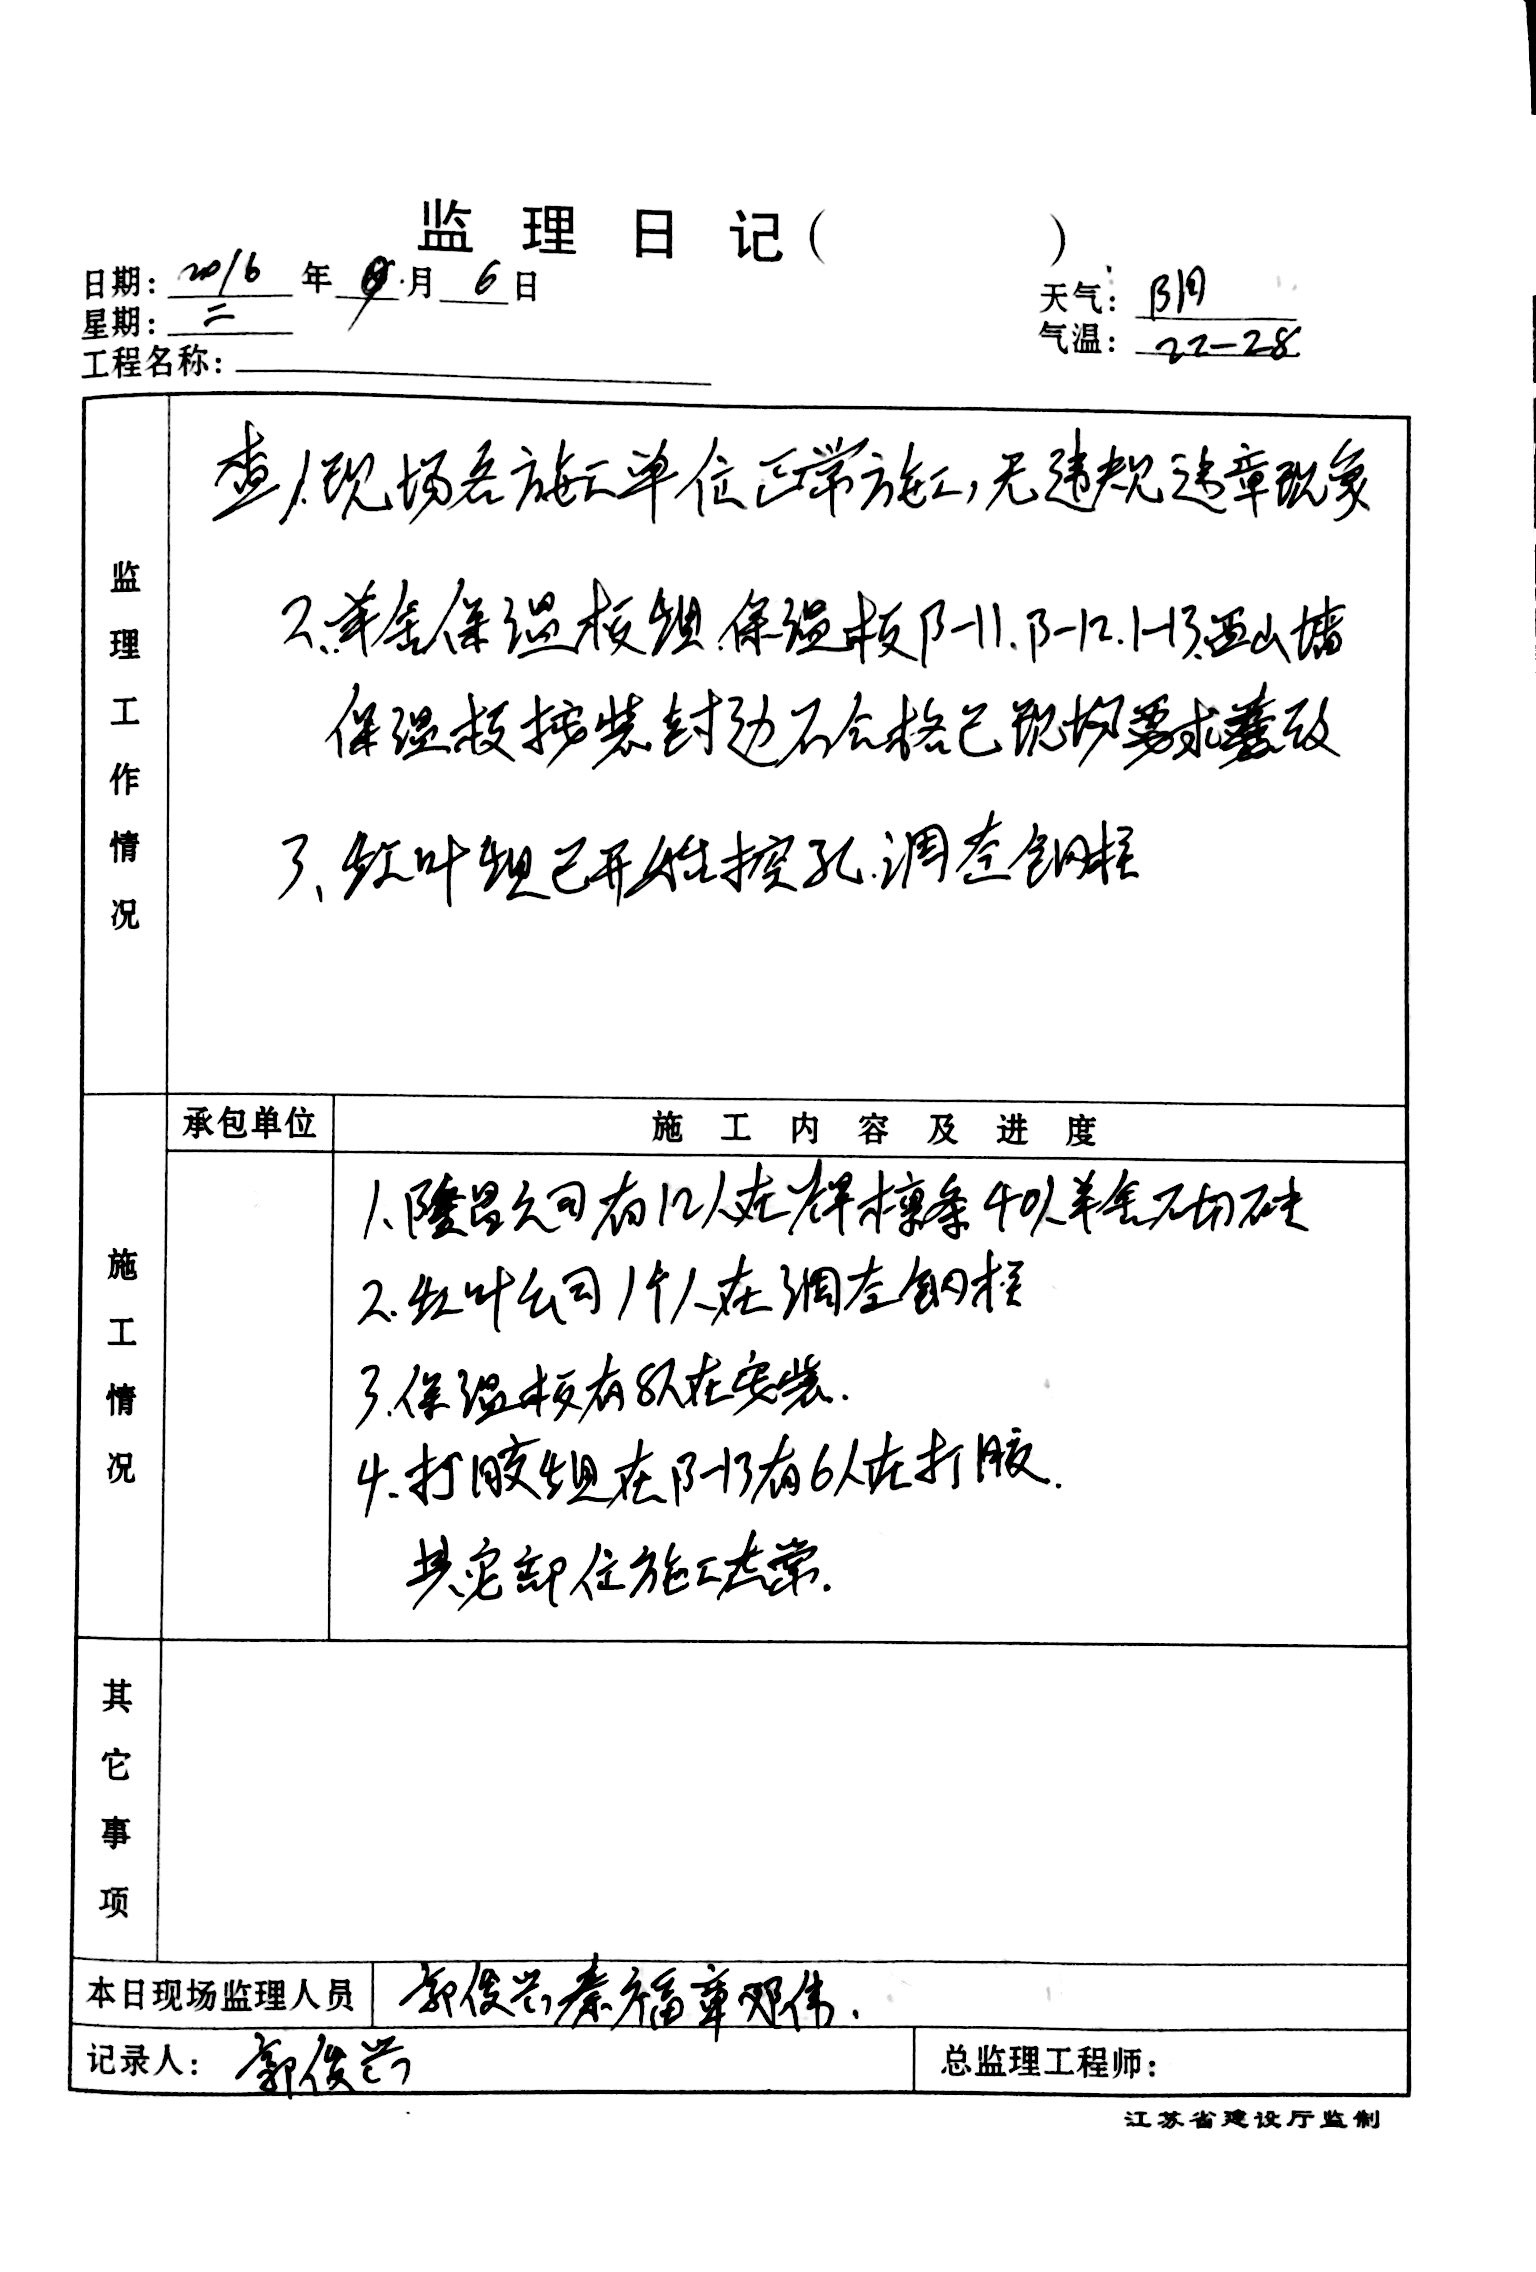 监理日记（ ）
日期：2016年9月6日
天气：阴
星期：二
气温：22-28
工程名称：
监理工作情况
查1.现场各施工单位正常施工，无违规违章现象
2.羊舍保温板组.保温板β-11.β-12.1-13.西山墙
保温板按装封边不合格已现场要求整改
3、红叶组已开始挖孔.调查钢柱
施工情况
承包单位
施工内容及进度
1、隆昌公司有12人在焊檩条40人羊舍石切砖
2.红叶公司1个人在调查钢柱
3.保温板有8人在安装.
4.打胶组在β-13有6人在打胶.
其它部位施工正常.
其它事项
本日现场监理人员 郭俊兴秦福章邓伟.
记录人：郭俊兴
总监理工程师：
江苏省建设厅监制